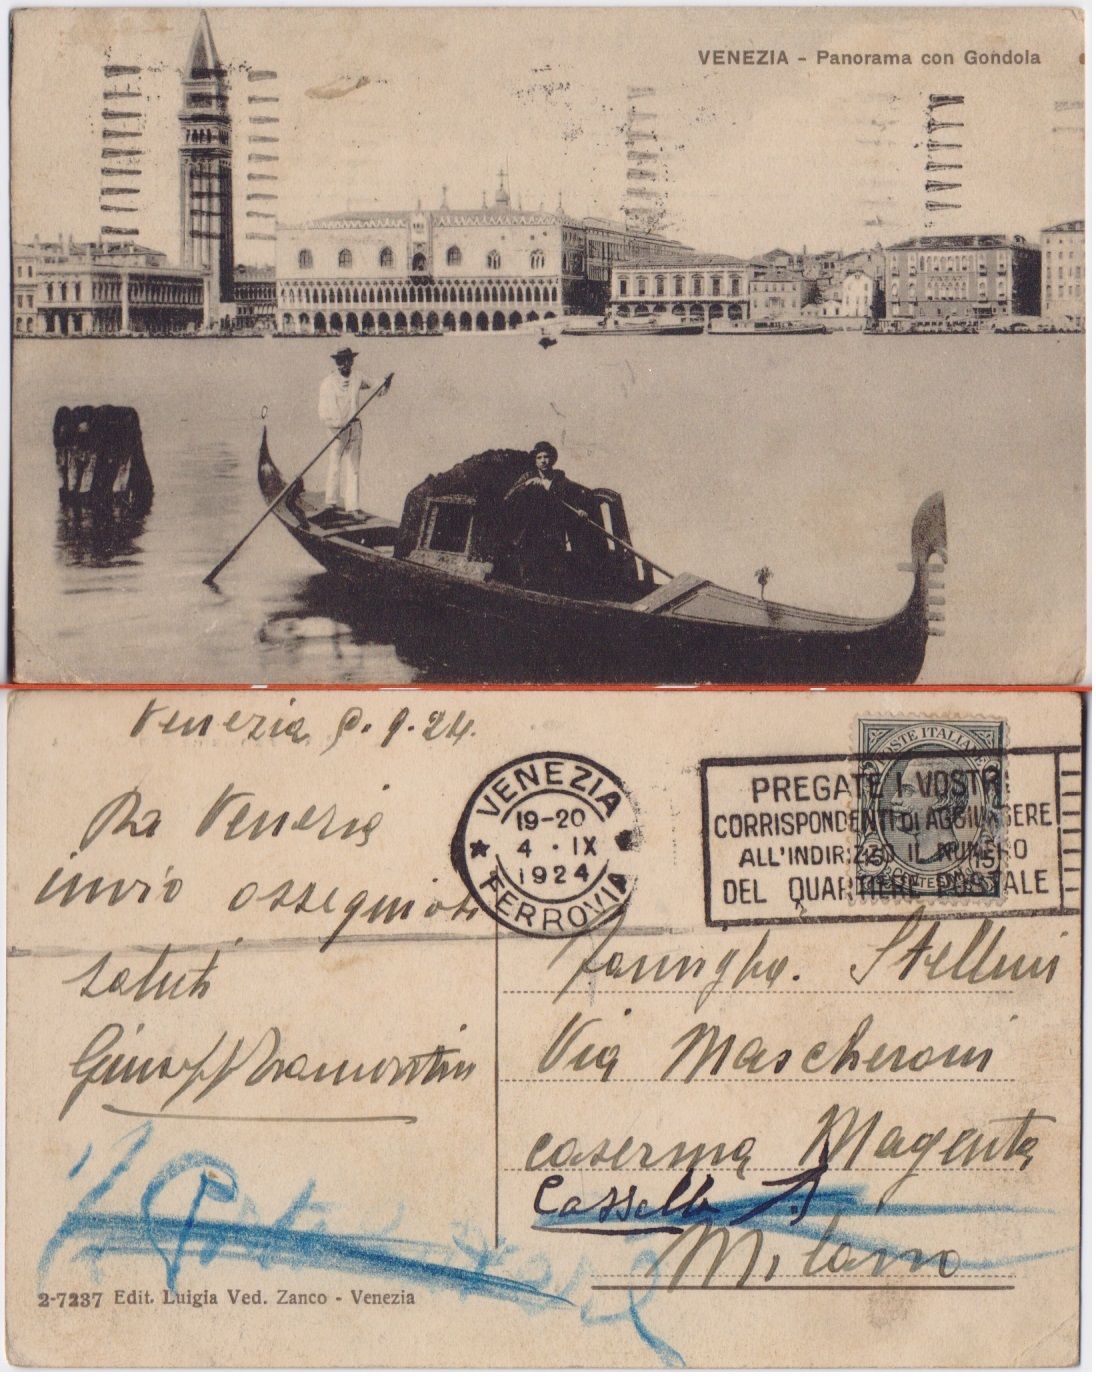 VENEZIA - Panorama con Gondola
Venezia 9.24.
Da Venezia
invio ossequiosi
saluti
VENEZIA
19-20
4 · IX
1924
FERROVIA
POSTE ITALIANE
15 15
PREGATE I VOSTRI
CORRISPONDENTI DI AGGIUNGERE
ALL'INDIRIZZO IL NUMERO
DEL QUARTIERE POSTALE
Famiglia. Stellini
Via Mascheroni
caserma Magenta
Casella
Milano
2-7237 Edit. Luigia Ved. Zanco - Venezia